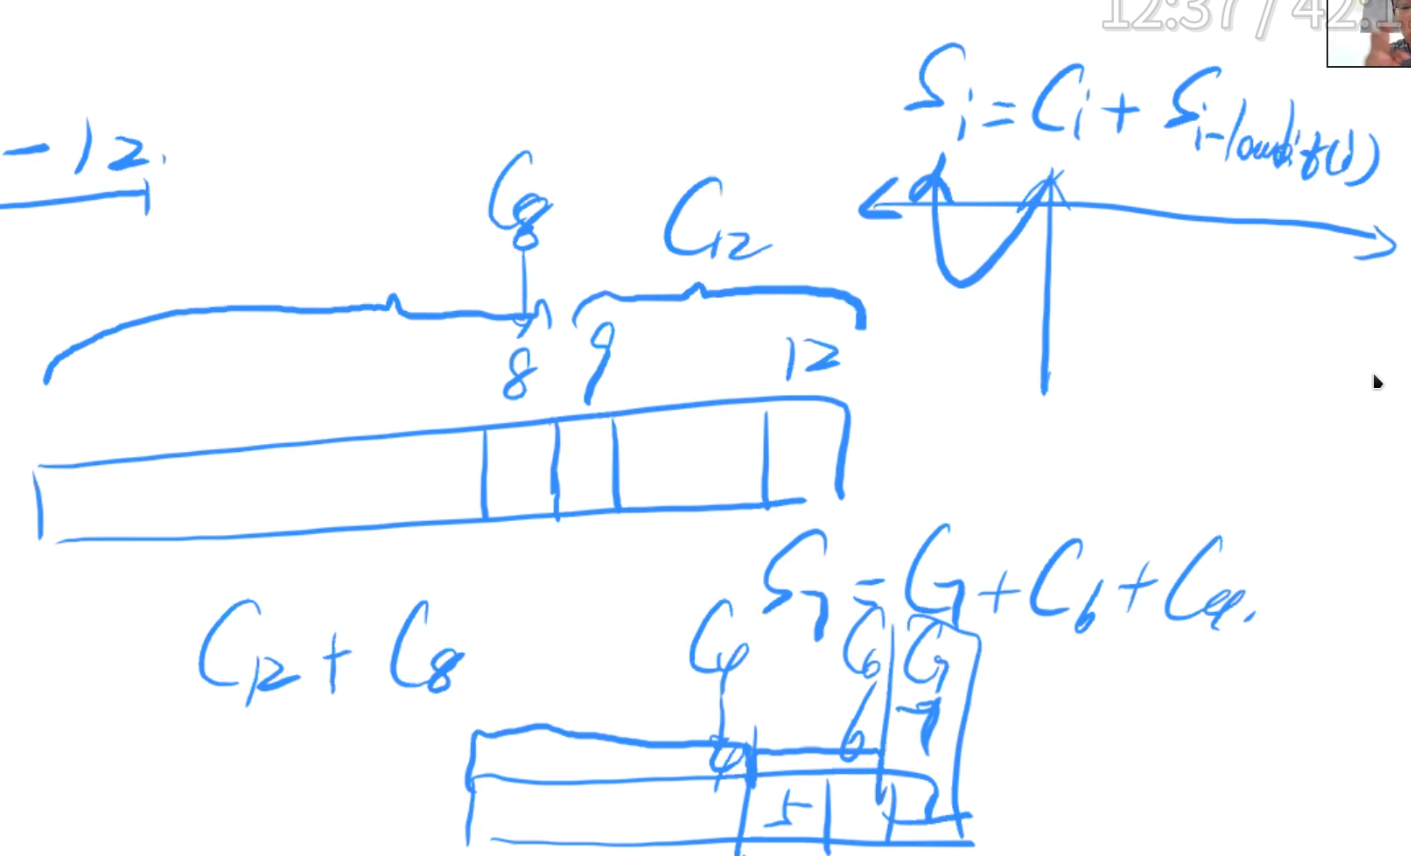 12:37 / 42:1
S_i = C_i + S_{i-lowbit(i)}
-12.
C_8
C_12
8 9 12
S_7 = C_7 + C_6 + C_4.
C_12 + C_8
C_4 C_6 C_7
4 6 7
5